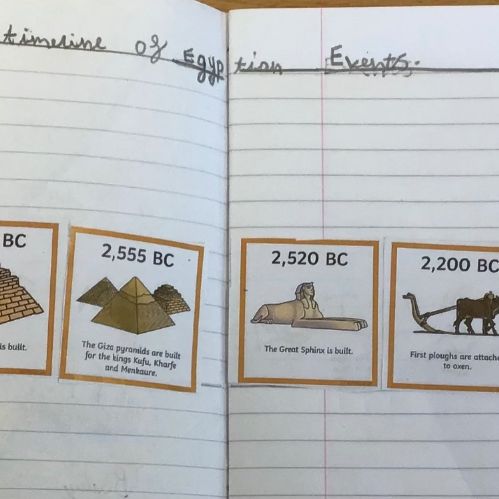 timeline of Egyptian Events.
BC
is built.
2,555 BC
The Giza pyramids are built
for the kings Kufu, Kharfe
and Menkaure.
2,520 BC
The Great Sphinx is built.
2,200 BC
First ploughs are attache
to oxen.